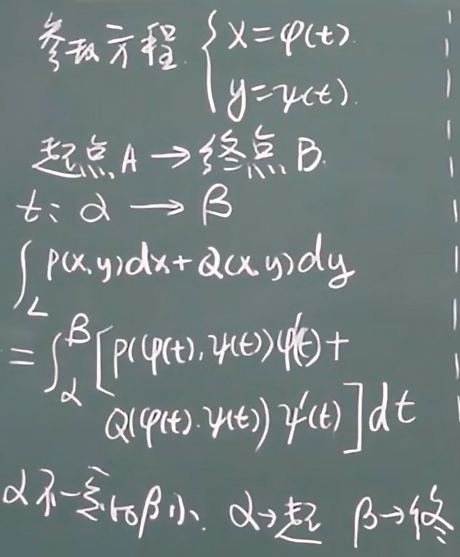 参数方程 { x=φ(t)
y=ψ(t)
起点A→终点B.
t: α → β
∫_L P(x,y)dx+Q(x,y)dy
=∫_α^β [P(φ(t),ψ(t))φ'(t)+
Q(φ(t).ψ(t))ψ'(t)]dt
α不一定比β小. α→起 β→终